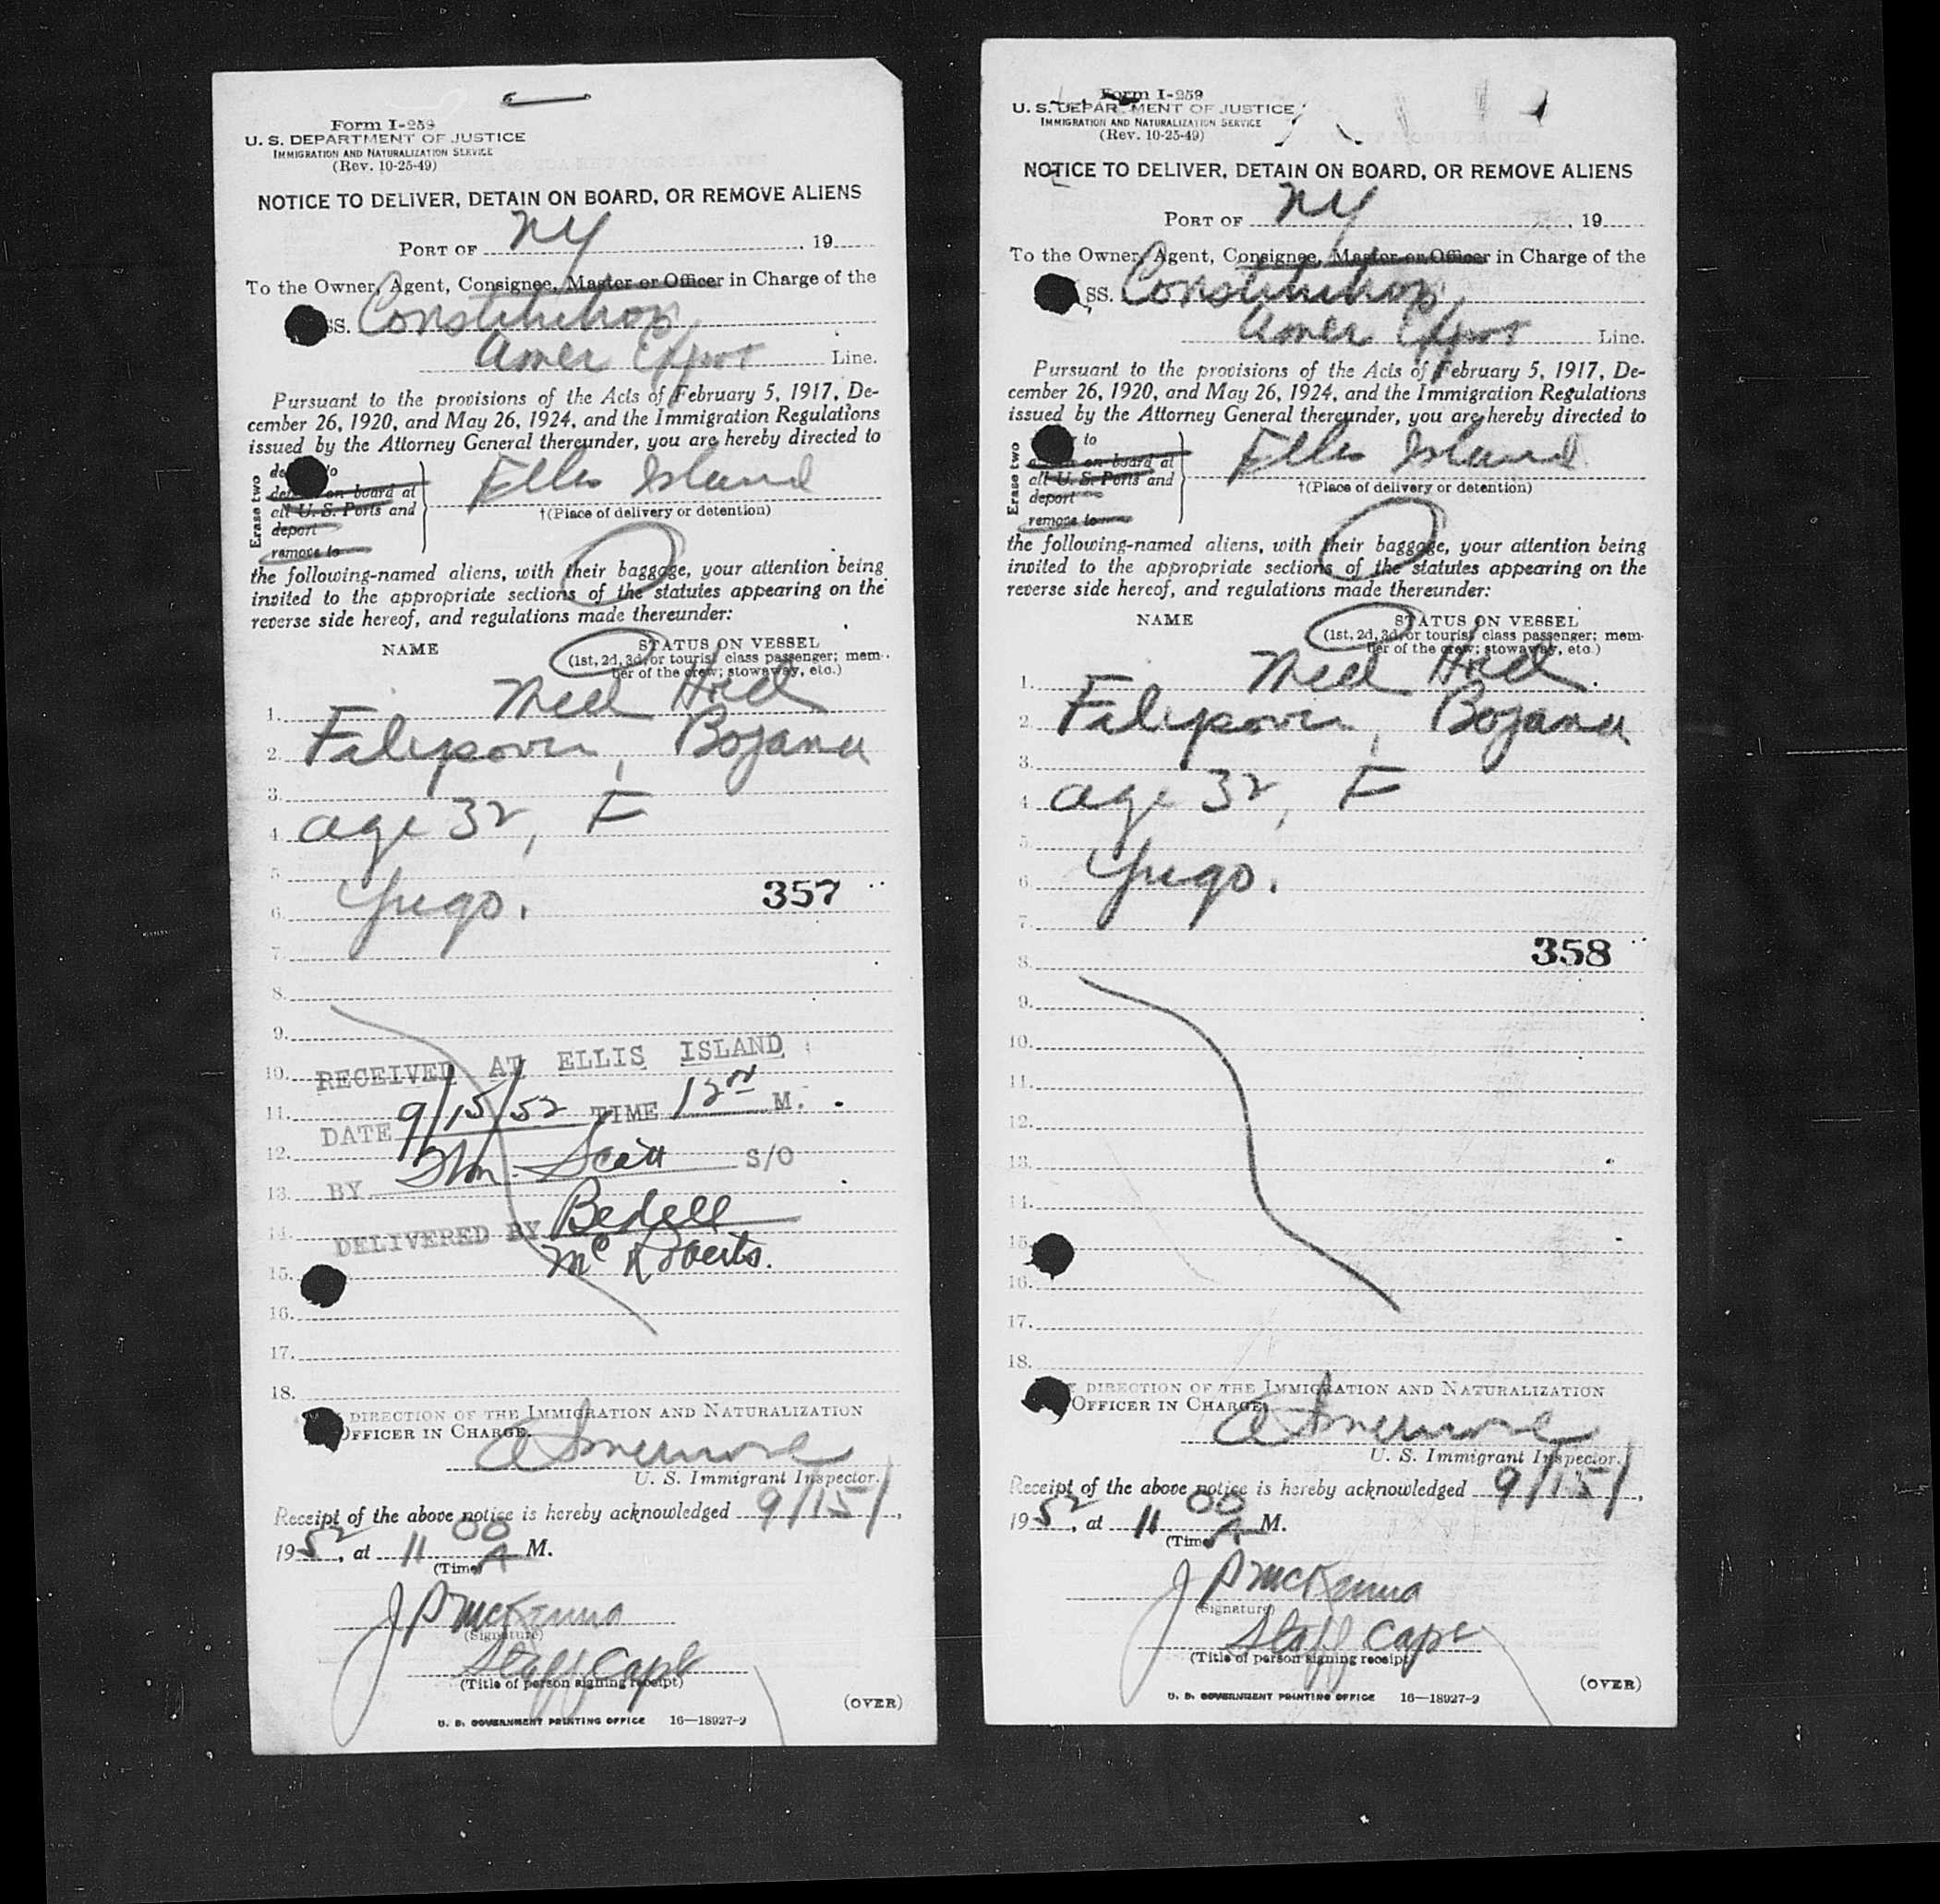 Form I-259
U. S. DEPARTMENT OF JUSTICE
IMMIGRATION AND NATURALIZATION SERVICE
(Rev. 10-25-49)
NOTICE TO DELIVER, DETAIN ON BOARD, OR REMOVE ALIENS
PORT OF NY, 19
To the Owner, Agent, Consignee, Master or Officer in Charge of the
SS. Constitution
Amer Export Line.
Pursuant to the provisions of the Acts of February 5, 1917, De-
cember 26, 1920, and May 26, 1924, and the Immigration Regulations
issued by the Attorney General thereunder, you are hereby directed to
Erase two
to
detain on board at
all U. S. Ports and
deport
remove to
Ellis Island
†(Place of delivery or detention)
the following-named aliens, with their baggage, your attention being
invited to the appropriate sections of the statutes appearing on the
reverse side hereof, and regulations made thereunder:
NAME STATUS ON VESSEL
(1st, 2d, 3d, or tourist class passenger; mem-
ber of the crew; stowaway, etc.)
1. Med Hold
2. Filipovic, Bojana
3.
4. age 32, F
5.
6. Yugo. 357
7.
8.
9.
10. RECEIVED AT ELLIS ISLAND
11. DATE 9/15/52 TIME 12 M.
12. BY Scott S/O
13.
14. DELIVERED BY Bedell
McRoberts.
15.
16.
17.
18.
DIRECTION OF THE IMMIGRATION AND NATURALIZATION
OFFICER IN CHARGE.
U. S. Immigrant Inspector.
Receipt of the above notice is hereby acknowledged 9/15/,
1952, at 11 00 A M.
(Time)
J P McKenna
(Signature)
Staff Capt
(Title of person signing receipt)
(OVER)
U. S. GOVERNMENT PRINTING OFFICE 16—18927-2
Form I-259
U. S. DEPARTMENT OF JUSTICE
IMMIGRATION AND NATURALIZATION SERVICE
(Rev. 10-25-49)
NOTICE TO DELIVER, DETAIN ON BOARD, OR REMOVE ALIENS
PORT OF NY, 19
To the Owner, Agent, Consignee, Master or Officer in Charge of the
SS. Constitution
Amer Export Line.
Pursuant to the provisions of the Acts of February 5, 1917, De-
cember 26, 1920, and May 26, 1924, and the Immigration Regulations
issued by the Attorney General thereunder, you are hereby directed to
Erase two
to
detain on board at
all U. S. Ports and
deport
remove to
Ellis Island
†(Place of delivery or detention)
the following-named aliens, with their baggage, your attention being
invited to the appropriate sections of the statutes appearing on the
reverse side hereof, and regulations made thereunder:
NAME STATUS ON VESSEL
(1st, 2d, 3d, or tourist class passenger; mem-
ber of the crew; stowaway, etc.)
1. Med Hold
2. Filipovic, Bojana
3.
4. age 32, F
5.
6. Yugo.
7.
8. 358
9.
10.
11.
12.
13.
14.
15.
16.
17.
18.
DIRECTION OF THE IMMIGRATION AND NATURALIZATION
OFFICER IN CHARGE.
U. S. Immigrant Inspector.
Receipt of the above notice is hereby acknowledged 9/15/,
1952, at 11 00 A M.
(Time)
J P McKenna
(Signature)
Staff Capt
(Title of person signing receipt)
(OVER)
U. S. GOVERNMENT PRINTING OFFICE 16—18927-2